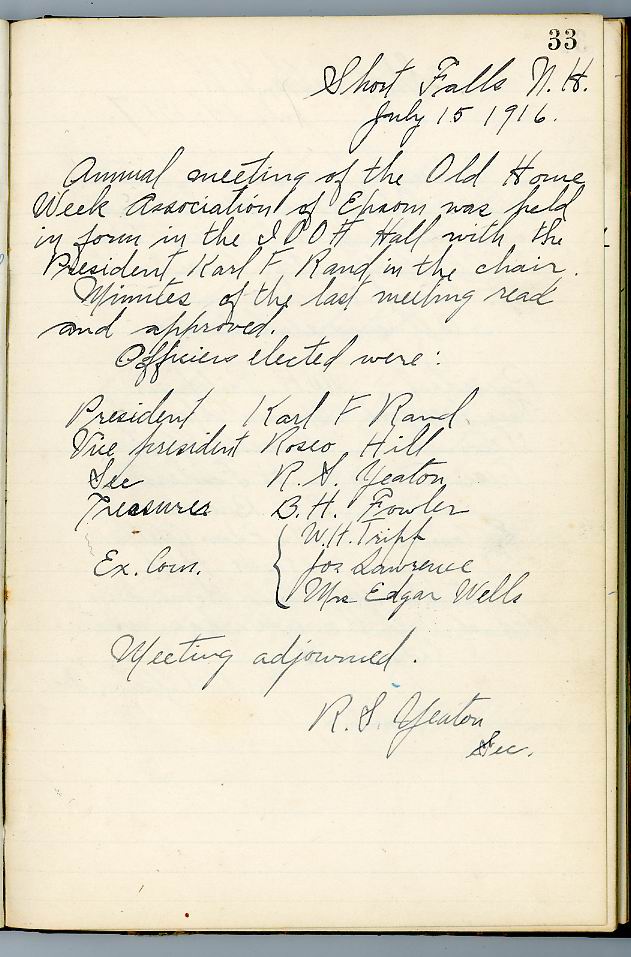 33
Short Falls N.H.
July 15 1916.
Annual meeting of the Old Home
Week Association of Epsom was held
in form in the IOOF Hall with the
President Karl F Rand in the chair.
Minutes of the last meeting read
and approved.
Officers elected were:
President Karl F Rand.
Vice president Rosco Hill
Sec R. S. Yeaton
Treasurer B. H. Fowler
W. H. Tripp
Ex. Com. Jos Lawrence
Mrs Edgar Wells
Meeting adjourned.
R. S. Yeaton
Sec.